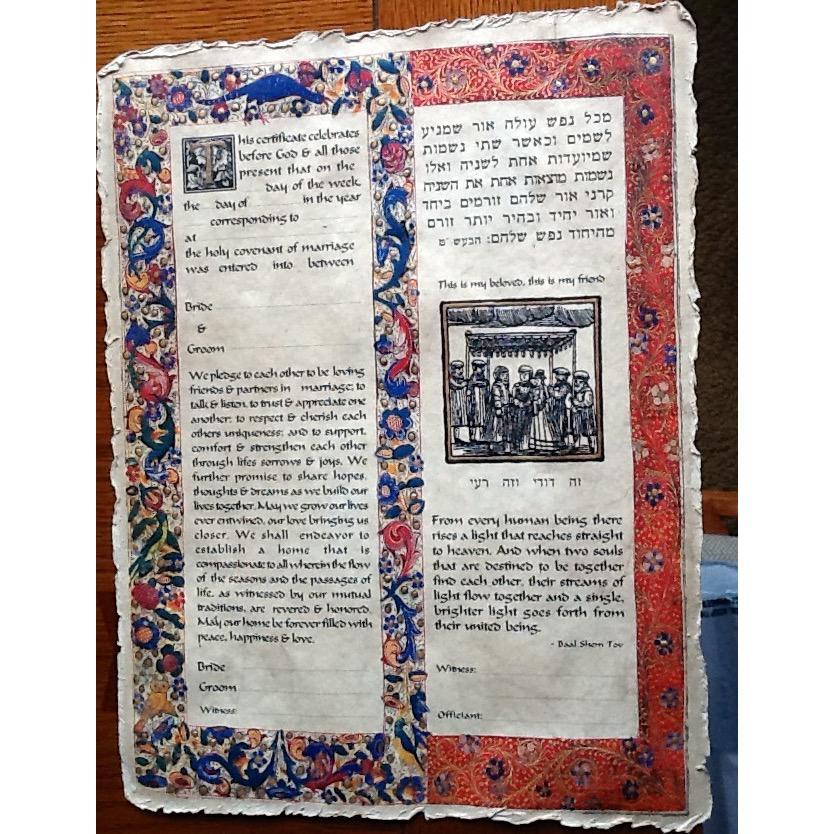 This certificate celebrates
before God & all those
present that on the
day of the week,
the day of in the year
corresponding to
at
the holy covenant of marriage
was entered into between
Bride
&
Groom
We pledge to each other to be loving
friends & partners in marriage; to
talk & listen, to trust & appreciate one
another; to respect & cherish each
others uniqueness; and to support,
comfort & strengthen each other
through lifes sorrows & joys. We
further promise to share hopes,
thoughts & dreams as we build our
lives together. May we grow our lives
ever entwined, our love bringing us
closer. We shall endeavor to
establish a home that is
compassionate to all wherein the flow
of the seasons and the passages of
life, as witnessed by our mutual
traditions, are revered & honored.
May our home be forever filled with
peace, happiness & love.
Bride
Groom
Witness:
מכל נפש עולה אור שמגיע
לשמים וכאשר שתי נשמות
שמיועדות אחת לשניה ואלו
נשמות מוצאות אחת את השניה
קרני אור שלהם זורמים ביחד
ואור יחיד ובהיר יותר זורם
מהיחוד נפש שלהם: הבעש״ט
This is my beloved, this is my friend
זה דודי וזה רעי
From every human being there
rises a light that reaches straight
to heaven. And when two souls
that are destined to be together
find each other, their streams of
light flow together and a single,
brighter light goes forth from
their united being.
- Baal Shem Tov
Witness:
Officiant: